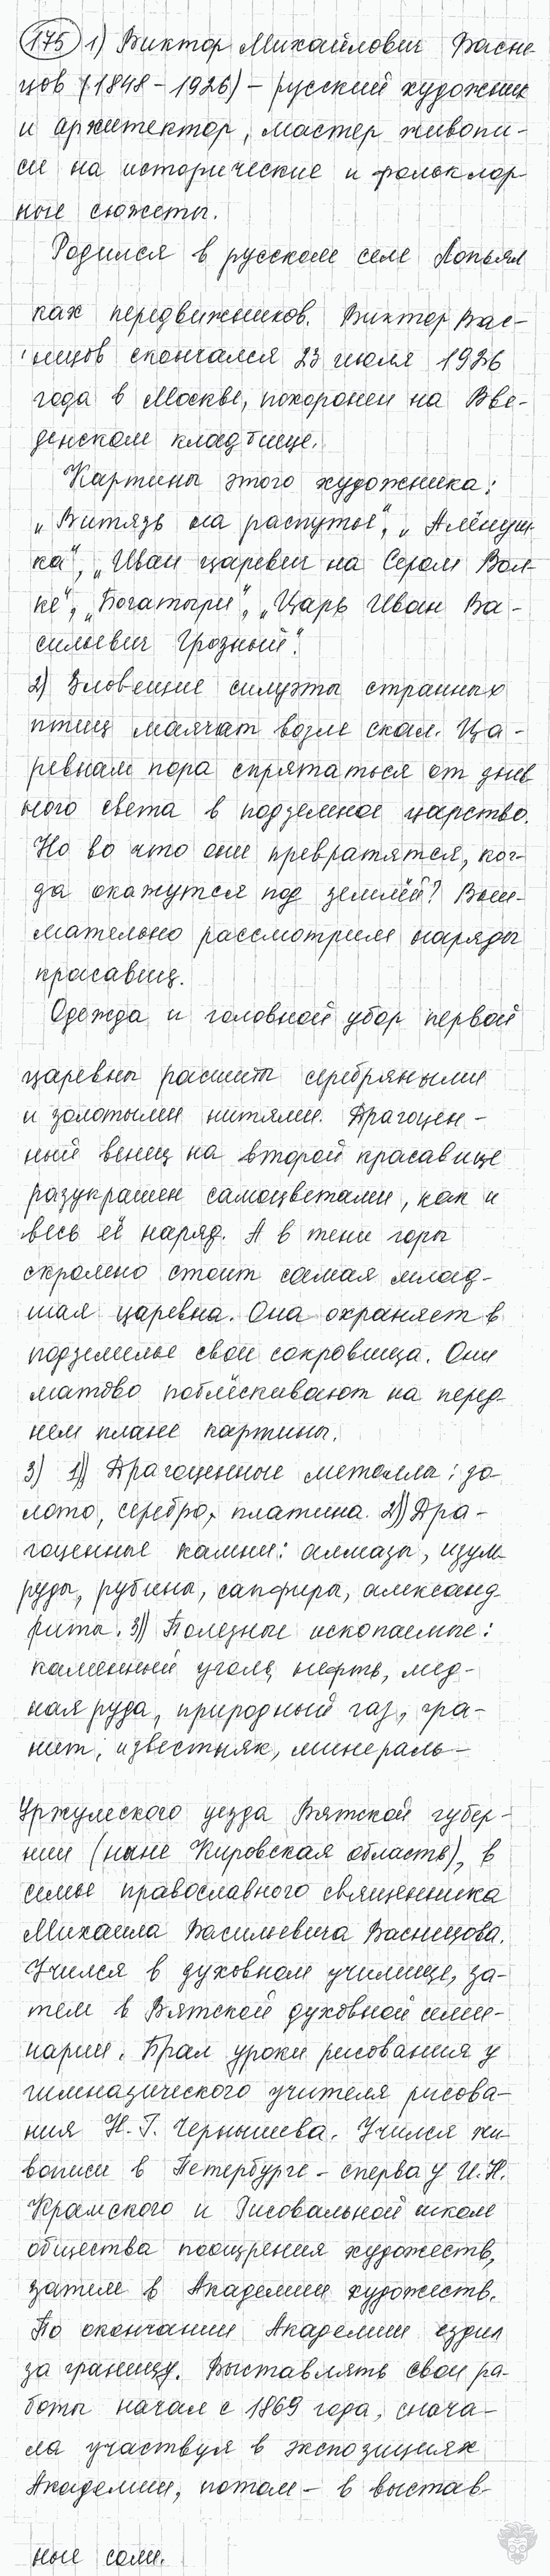 175 1) Виктор Михайлович Васне-
цов (1848 - 1926) - русский художник
и архитектор, мастер живопи-
си на исторические и фольклор-
ные сюжеты.
Родился в русском селе Лопьял
ках передвижников. Виктор Вас-
нецов скончался 23 июля 1926
года в Москве, похоронен на Вве-
денском кладбище.
Картины этого художника:
„Витязь на распутье", „Алёнуш-
ка", „Иван царевич на Сером Вол-
ке", „Богатыри", „Царь Иван Ва-
сильевич Грозный".
2) Зловещие силуэты странных
птиц маячат возле скал. Ца-
ревнам пора спрятаться от днев
ного света в подземное царство.
Но во что они превратятся, ког-
да окажутся под землёй? Вни-
мательно рассмотрим наряды
красавиц.
Одежда и головной убор первой
царевны расшиты серебряными
и золотыми нитями. Драгоцен-
ный венец на второй красавице
разукрашен самоцветами, как и
весь её наряд. А в тени горы
скромно стоит самая млад-
шая царевна. Она охраняет в
подземелье свои сокровища. Они
матово поблёскивают на перед-
нем плане картины.
3) 1)) Драгоценные металлы: зо-
лото, серебро, платина. 2)) Дра-
гоценные камни: алмазы, изум-
руды, рубины, сапфиры, александ-
риты. 3)) Полезные ископаемые:
каменный уголь, нефть, мед-
ная руда, природный газ, гра-
нит, известняк, минераль-
Уржумского уезда Вятской губер-
нии (ныне Кировская область), в
семье православного священника
Михаила Васильевича Васнецова.
Учился в духовном училище, за-
тем в Вятской духовной семи-
нарии. Брал уроки рисования у
гимназического учителя рисова-
ния Н. Г. Чернышева. Учился жи
вописи в Петербурге - сперва у И. Н.
Крамского и Рисовальной школе
общества поощрения художеств,
затем в Академии художеств.
По окончании Академии ездил
за границу. Выставлять свои ра-
боты начал с 1869 года, снача-
ла участвуя в экспозициях
Академии, потом - в выстав-
ные соли.